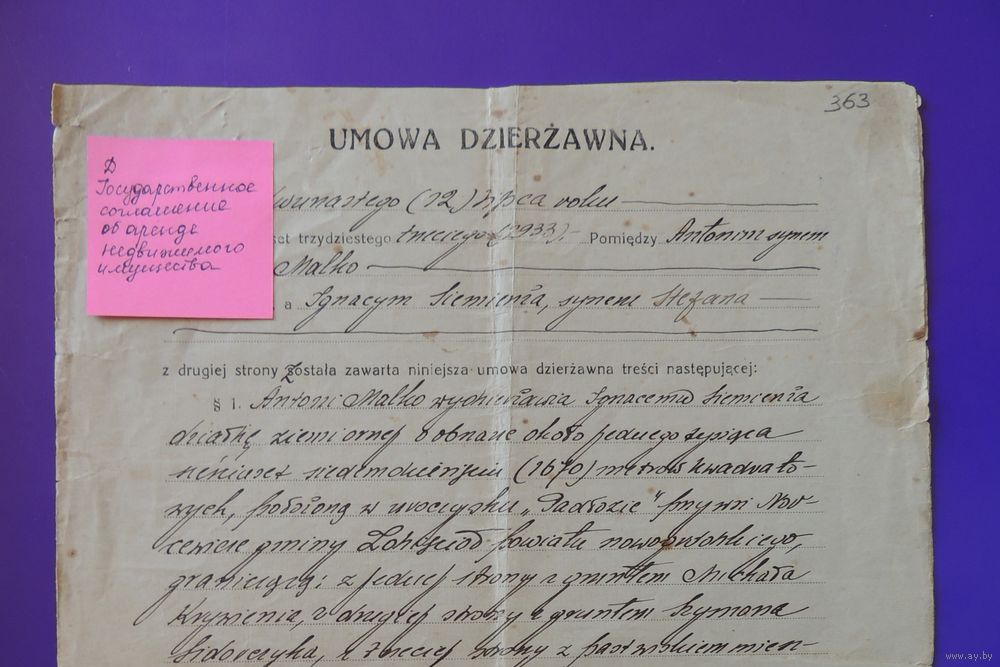 363
UMOWA DZIERŻAWNA.
Д
Государственное
соглашение
об аренде
недвижимого
имущества
(12) lipca roku
set trzydziestego trzeciego (1933).- Pomiędzy Antonim synem
Malko
a Ignacym Siemienia, synem Stefana
z drugiej strony została zawarta niniejsza umowa dzierżawna treści następującej:
§ 1. Antoni Malko wydzierżawia Ignacemu Siemienia
działkę ziemi ornej o obszarze około jednego tysiąca
(1670) metrów kwadrato-
wych, położoną w uroczysku
gminy powiatu nowogródzkiego,
graniczącą: z jednej strony z gruntem Michała
z drugiej strony z gruntem Szymona
Sidorczyka, z trzeciej strony z pastwiskiem
www.ay.by